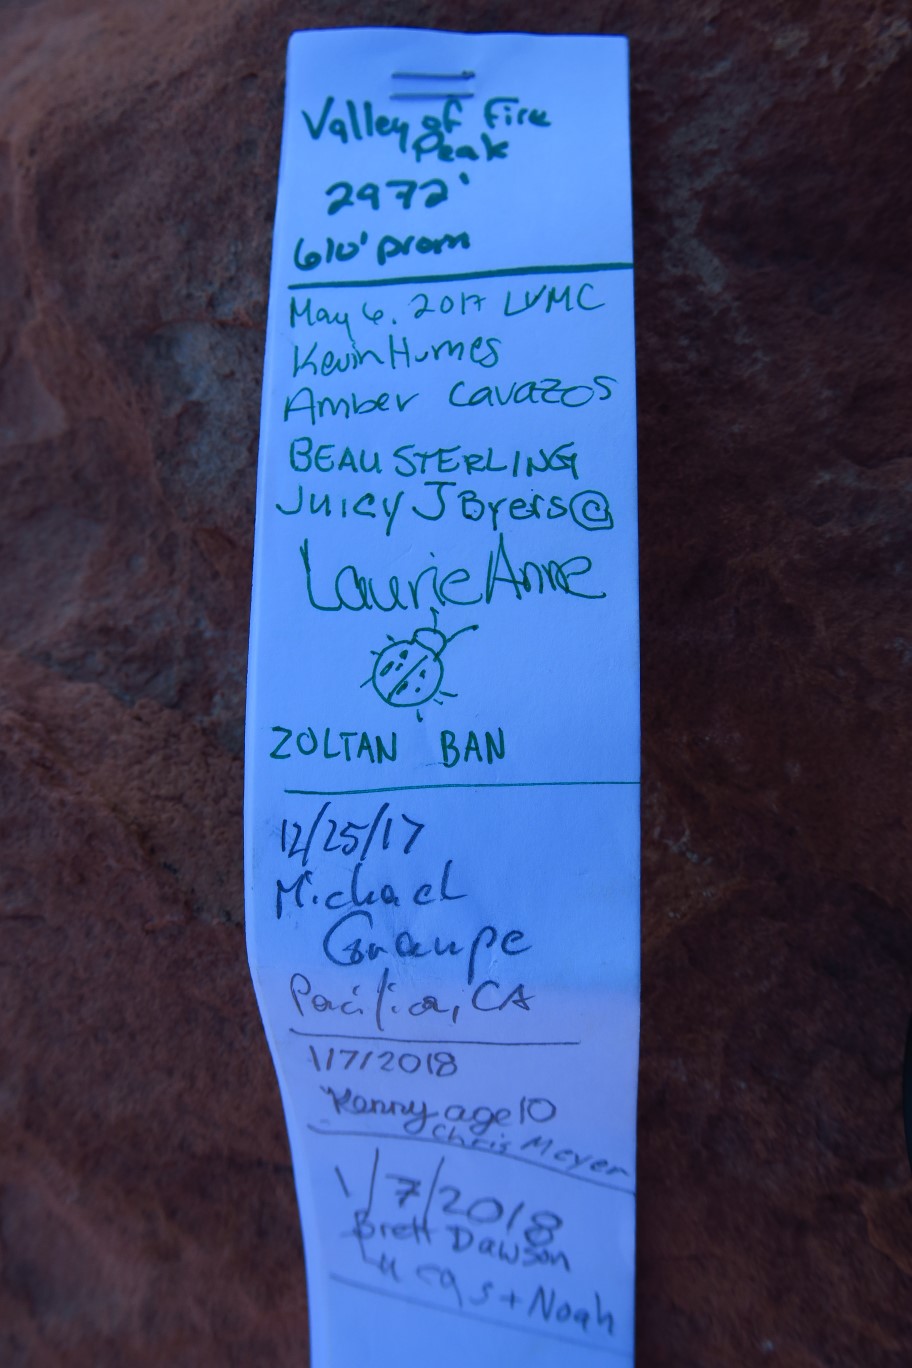 Valley of Fire
Peak
2972'
610' prom
May 6, 2017 LVMC
Kevin Humes
Amber Cavazos
BEAU STERLING
JUICY J Byers@
LaurieAnne
ZOLTAN BAN
12/25/17
Michael
Graupe
Pacifica, CA
1/7/2018
Kenny age 10
Chris Meyer
1/7/2018
Brett Dawson
Lucas + Noah